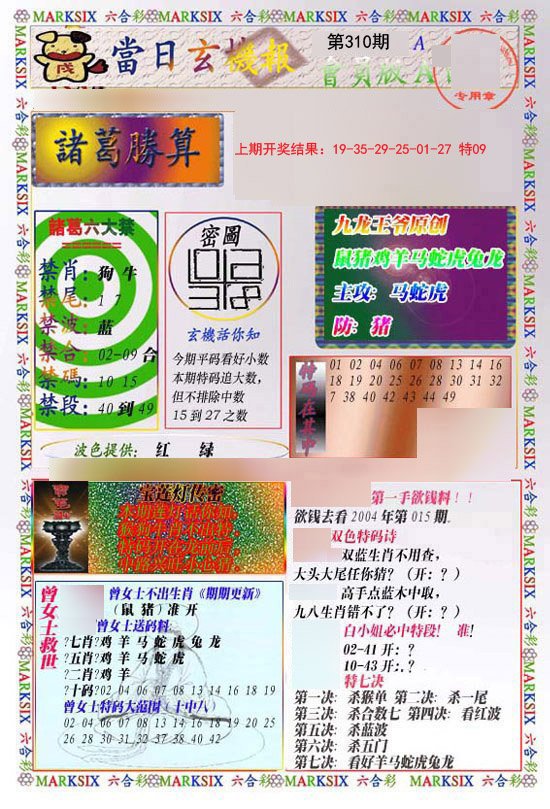 MARKSIX 六合彩 MARKSIX 六合彩 MARKSIX 六合彩 MARKSIX 六合彩
當日玄機報
第310期
專用章
諸葛勝算
上期开奖结果：19-35-29-25-01-27 特09
諸葛六大禁
禁肖：狗 牛
禁尾：1 7
禁波：蓝
禁合：02-09 合
禁碼：10 15
禁段：40 到 49
密圖
玄機話你知
今期平码看好小数
本期特码追大数，
但不排除中数
15 到 27 之数
九龙王爷原创
鼠猪鸡羊马蛇虎兔龙
主攻：马蛇虎
防：猪
01 02 04 06 07 08 13 14 16
18 19 20 25 26 28 30 31 32
7 38 40 42 43 44 49
波色提供： 红 绿
宝莲灯传密
第一手欲钱料！！
欲钱去看 2004 年第 015 期。
双色特码诗
双蓝生肖不用查，
大头大尾任你猜？（开：？）
高手点蓝木中取，
九八生肖错不了？（开：？）
白小姐必中特段！ 准！
02-41 开：？
10-43 开：？
特七决
第一决：杀猴单 第二决：杀一尾
第三决：杀合数七 第四决：看红波
第五决：杀蓝波
第六决：杀五门
第七决：看好羊马蛇虎兔龙
曾女士救世
曾女士不出生肖《期期更新》
（鼠 猪）准 开
曾女士送码料：
?七肖?鸡 羊 马 蛇 虎 兔 龙
?五肖?鸡 羊 马 蛇 虎
?二肖?鸡 羊
?十码?02 04 06 07 08 13 14 16 18 19
曾女士特码大范围（十中八）
02 04 06 07 08 13 14 16 18 19 20 25
26 28 30 31 32 37 38 40 42
MARKSIX 六合彩 MARKSIX 六合彩 MARKSIX 六合彩 MARKSIX 六合彩